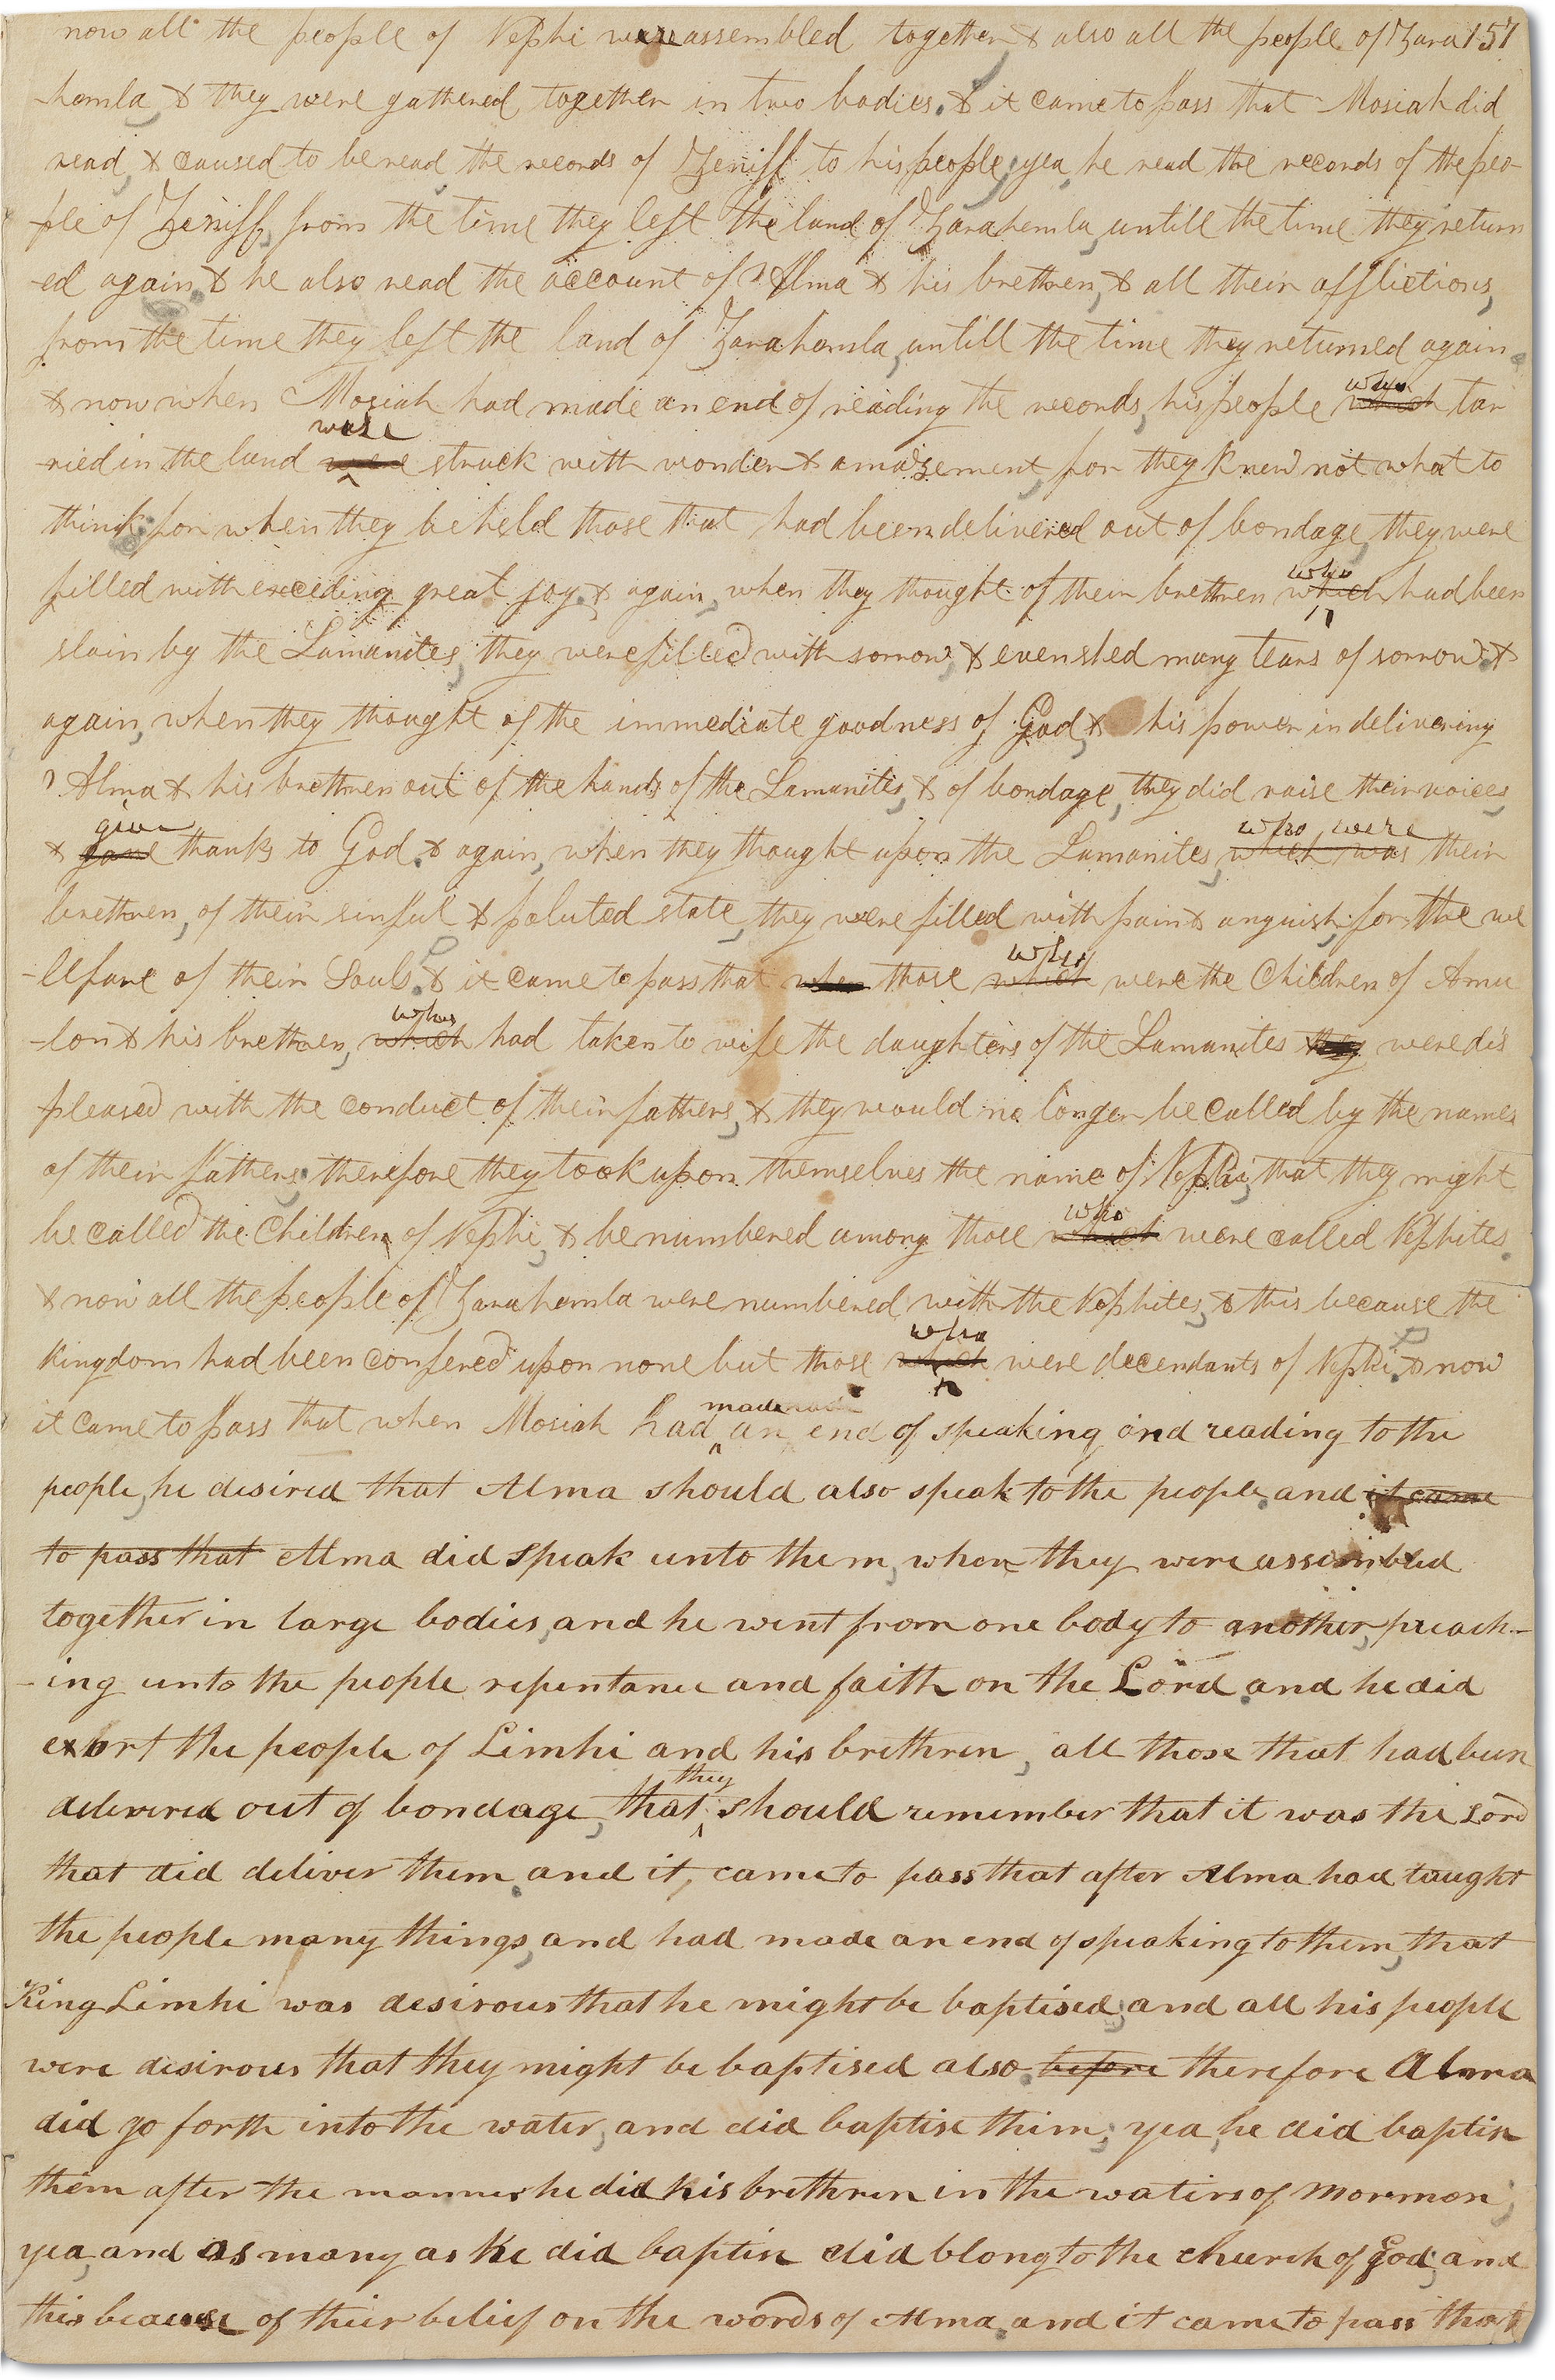 now all the people of Nephi were assembled together & also all the people of Zara 157
-hemla, & they were gathered together in two bodies. & it came to pass that Mosiah did
read, & caused to be read the records of Zeniff to his people; yea, he read the records of the peo-
ple of Zeniff, from the time they left the land of Zarahemla, untill the time they return
-ed again. & he also read the account of Alma & his brethren, & all their afflictions,
from the time they left the land of Zarahemla, untill the time they returned again.
& now when Mosiah had made an end of reading the records, his people which who tar
-ried in the land were were struck with wonder & amazement, for they knew not what to
think; for when they beheld those that had been delivered out of bondage, they were
filled with exceding great joy. & again, when they thought of their brethren which who had been
slain by the Lamanites, they were filled with sorrow, & even shed many tears of sorrow. &
again, when they thought of the immediate goodness of God, & his power in delivering
Alma & his brethren out of the hands of the Lamanites, & of bondage, they did raise their voices,
& gave give thanks to God. & again, when they thought upon the Lamanites, which was who were their
brethren, of their sinful & poluted state, they were filled with pain & anguish, for the we
-lfare of their Souls. & it came to pass that when those which who were the Children of Amu
-lon & his brethren, which who had taken to wife the daughters of the Lamanites they were dis
pleased with the conduct of their fathers, & they would no longer be called by the names
of their fathers; therefore they took upon themselves the name of Nephi, that they might
be called the Children of Nephi, & be numbered among those which who were called Nephites.
& now all the people of Zarahemla were numbered with the Nephites, & this because the
kingdom had been confered upon none but those which who were decendants of Nephi. & now
it came to pass that when Mosiah had made an end of speaking and reading to the
people, he desired that Alma should also speak to the people. and it came
to pass that Alma did speak unto them, when they were assembled
together in large bodies, and he went from one body to another, preach-
-ing unto the people repentance and faith on the Lord. and he did
exort the people of Limhi and his brethren, all those that had been
delivered out of bondage, that they should remember that it was the Lord
that did deliver them. and it, came to pass that after Alma had taught
the people many things, and had made an end of speaking to them, that
King Limhi was desirous that he might be baptised; and all his people
were desirous that they might be baptised also. before therefore Alma
did go forth into the water, and did baptise them; yea, he did baptise
them after the manner he did his brethren in the waters of Mormon;
yea, and as many as he did baptise did blong to the church of God; and
this because of their belief on the words of Alma. and it came to pass that